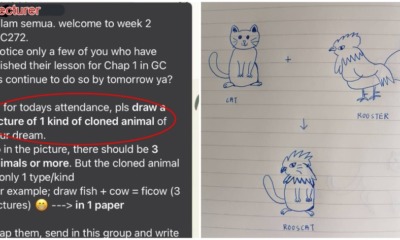 ecturer
lam semua. welcome to week 2
C272.
otice only a few of you who have
ished their lesson for Chap 1 in GC
s continue to do so by tomorrow ya?
for todays attendance, pls draw a
cture of 1 kind of cloned animal of
ur dream.
in the picture, there should be 3
imals or more. But the cloned animal
only 1 type/kind
r example; draw fish + cow = ficow (3
ctures) 😁 ---> in 1 paper
ap them, send in this group and write
CAT
+
ROOSTER
ROOSCAT